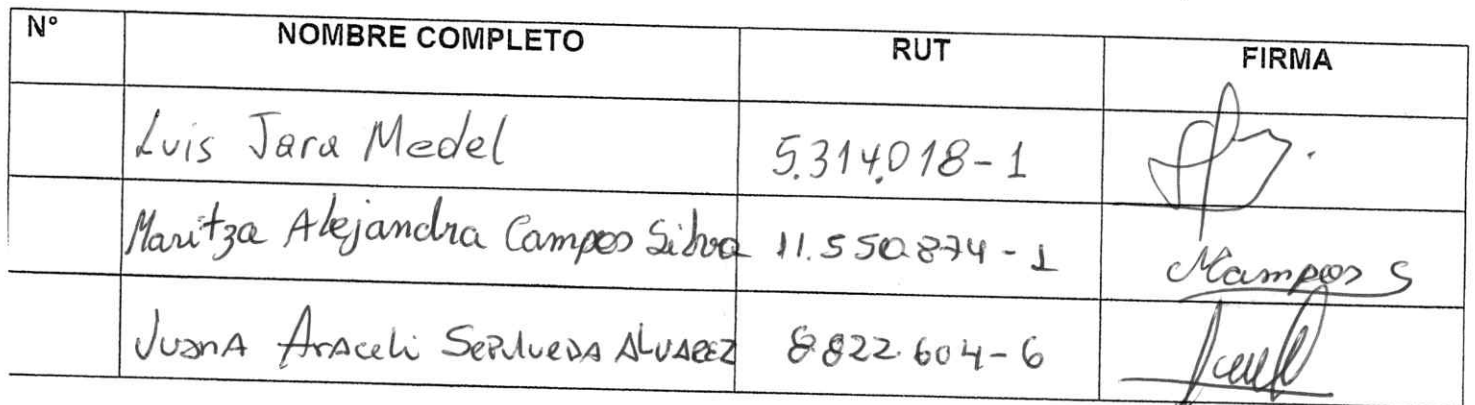 N° NOMBRE COMPLETO RUT FIRMA
Luis Jara Medel 5.314.018-1
Maritza Alejandra Campos Silva 11.550.874-1 Mampos S
Juana Araceli Sepulveda Alvarez 8.822.604-6